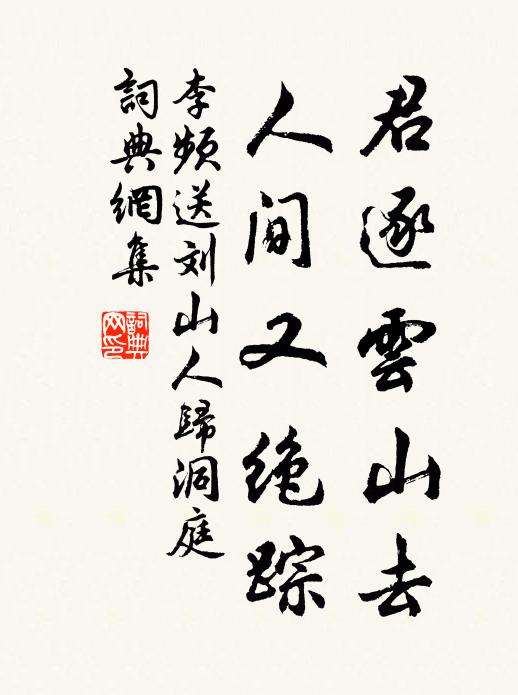 君逐雲山去
人间又绝踪
李频送刘山人歸洞庭
詞典網集
詞典
网印